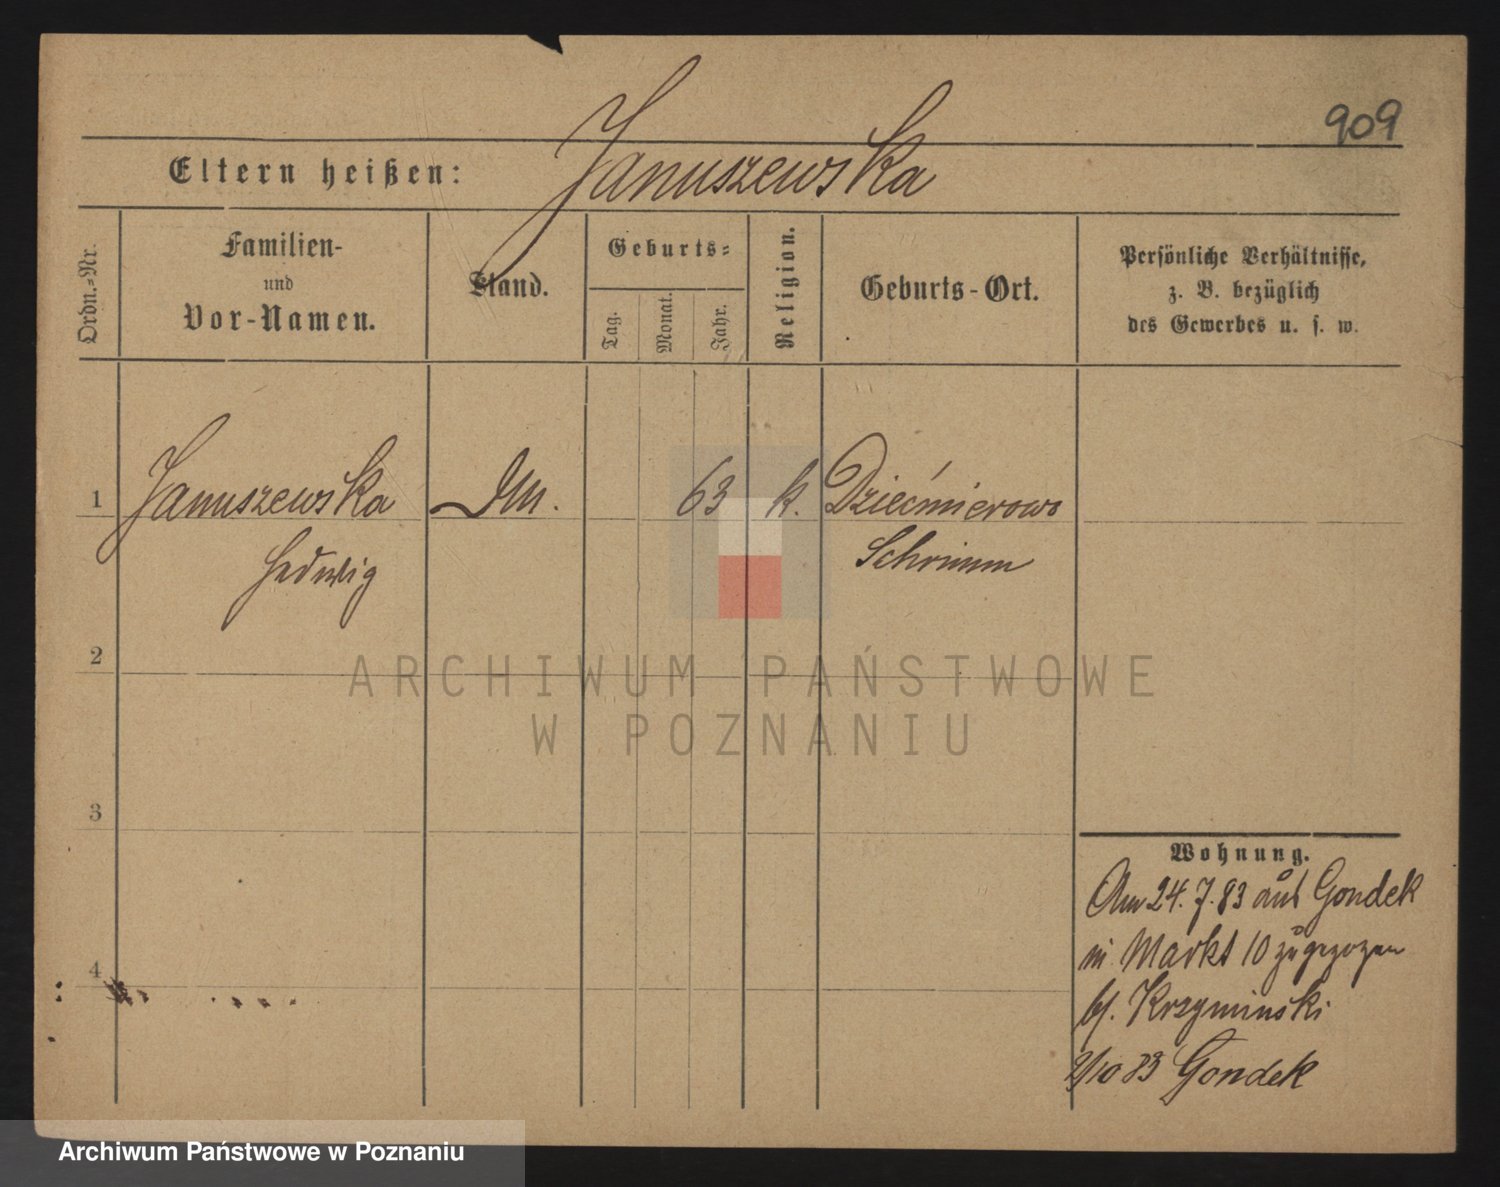 909
Januszewska
Eltern heißen:
Ordn.-Nr.
Familien-
und
Vor-Namen.
Stand.
Geburts-
Tag.
Monat.
Jahr.
Religion.
Geburts-Ort.
Persönliche Verhältnisse,
z. B. bezüglich
des Gewerbes u. s. w.
1 Januszewska 63 k. Dziećmierowo
Hedwig Schrimm
2
3
4
ARCHIWUM PAŃSTWOWE
W POZNANIU
Wohnung.
Am 24.7.83 aus Gondek
in Markt 10 zugezogen
bj. Krzyminski
2/10 83 Gondek
Archiwum Państwowe w Poznaniu